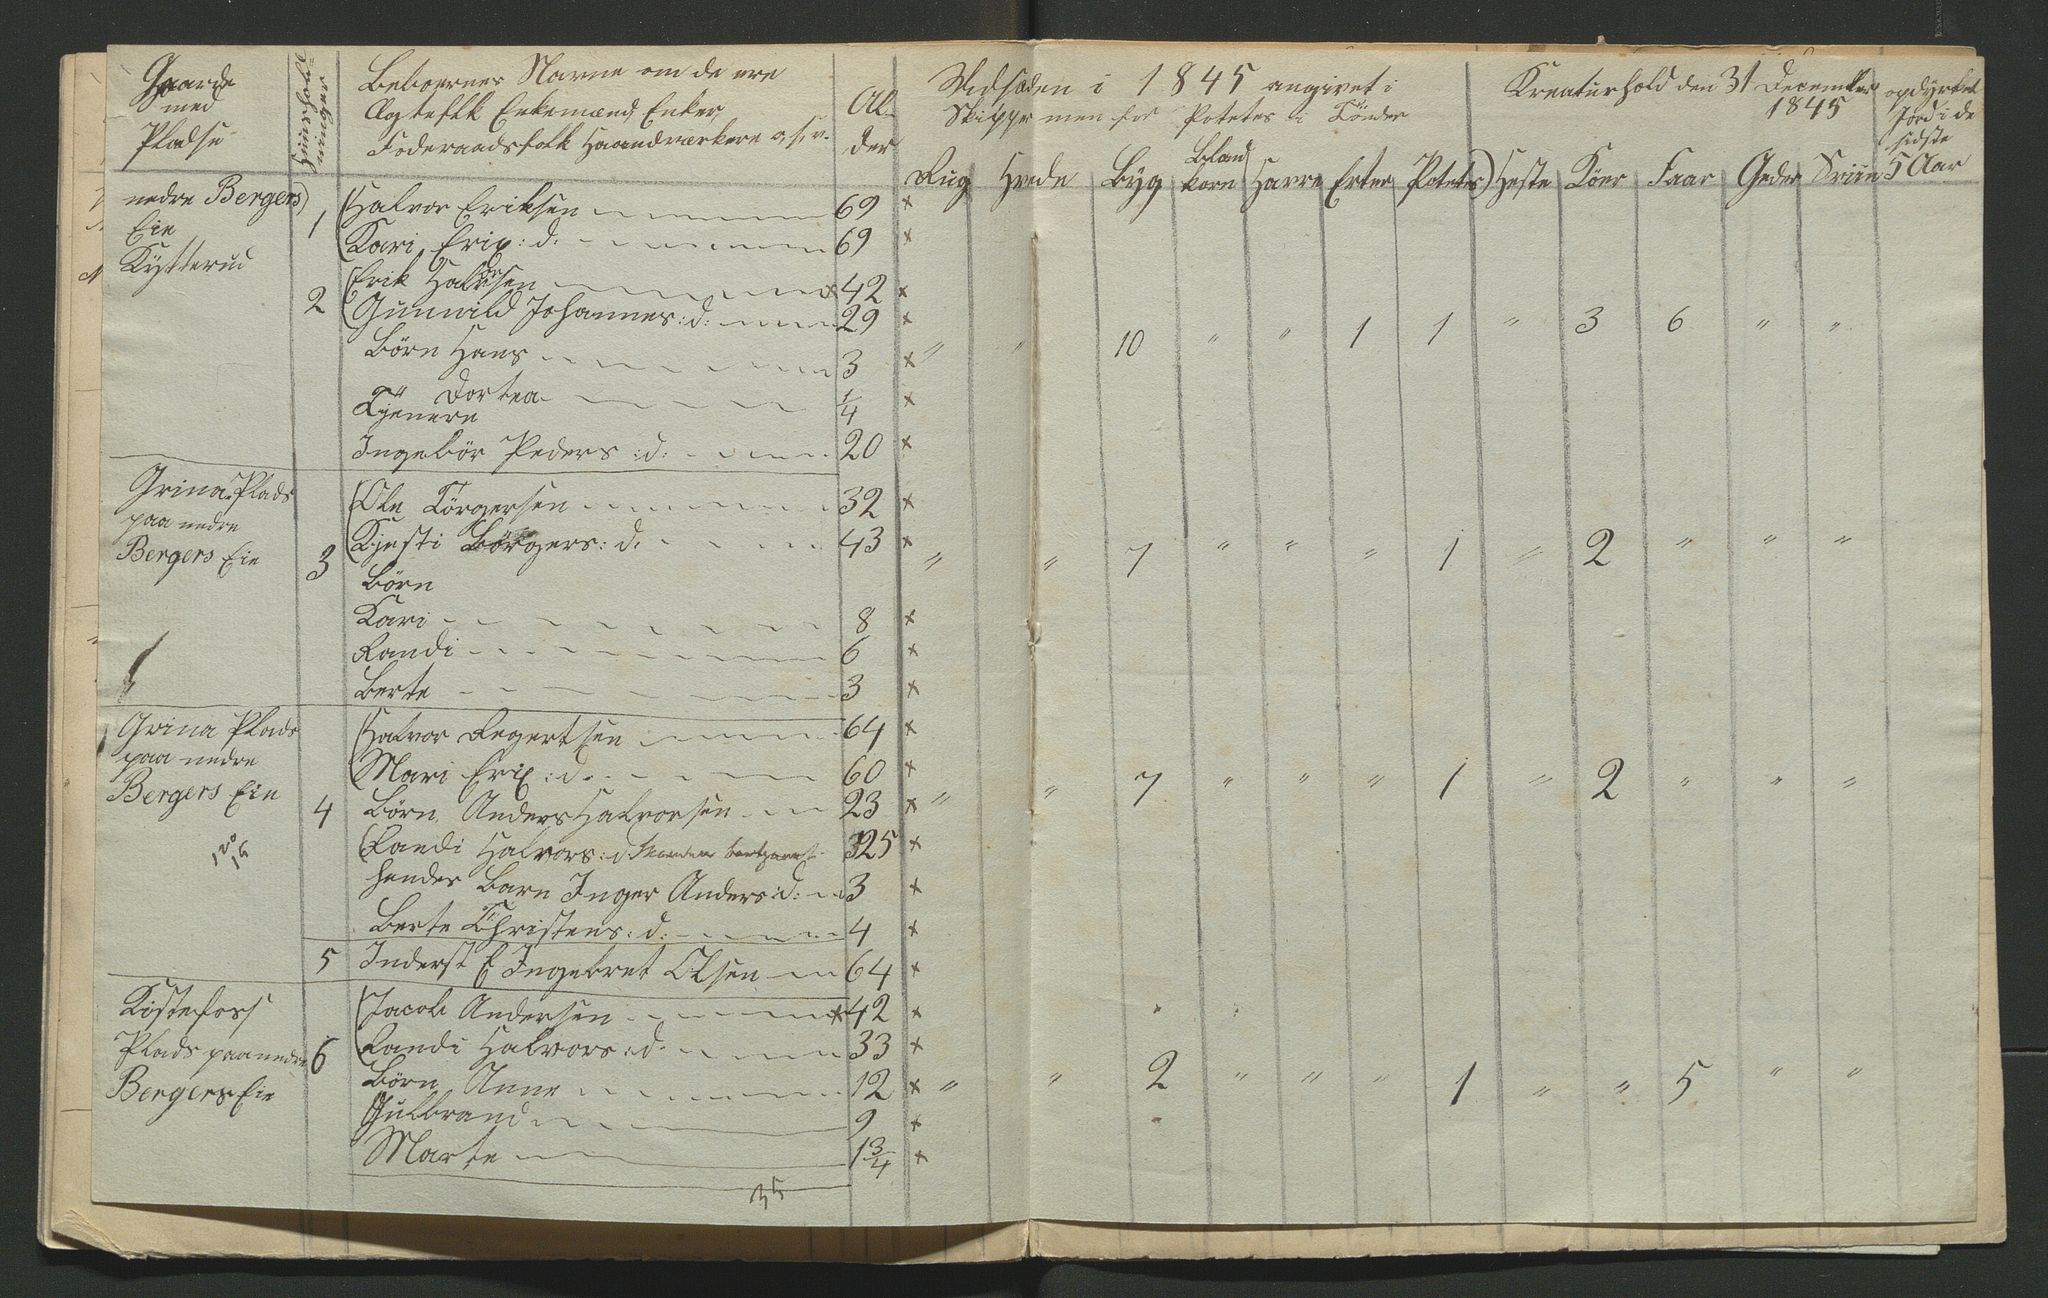 Gaarde med Pladse
Huusholdninger
Beboernes Navne om de ere
Ægtefolk Enkemænd Enker,
Foderaadsfolk Haandværkere o. s. v.
Alder
Udsæden i 1845 angivet i
Skipper men for Potetes i Tönder
Kreaturhold den 31 December 1845
opdyrket Jord i de sidste 5 Aar
Rug Hvede Byg Blandkorn Havre Erter Potetes Heste Köer Faar Geder Sviin
nedre Bergers Eie Kytterud
1 Halvor Eriksen 69 x
Kari Erix:d: 69 x
2 Erik Halvorsen x 42 x
Gunnild Johannes:d: 29 x
Börn Hans 3 x " " 10 " " 1 1 " 3 6 " "
Dortea 1/4 x
Tjenere
Ingebör Peders:d: 20 x
Grina Plads paa nedre Bergers Eie
3 Ole Törgersen 32 x
Kjesti Börgers:d: 43 x " " 7 " " " 1 " 2 " " "
Börn
Kari 8 x
Randi 6 x
Berte 3 x
Grina Plads paa nedre Bergers Eie
4 Halvor Regertsen 64 x
Mari Erix:d: 60 x
Börn Anders Halvorsen 23 x " " 7 " " " 1 " 2 " " "
Randi Halvors:d 25 x
hendes Barn Inger Anders:d: 3 x
Berte Christens:d: 4 x
5 Inderst E Ingebret Olsen 64 x
Kistefoss Plads paa nedre Bergers Eie
6 Jacob Andersen x 42 x
Randi Halvors:d: 33 x
Börn Anne 12 x " " 2 " " " 1 " " 5 " "
Gulbrand 9 x
Marte 1 3/4 x
35